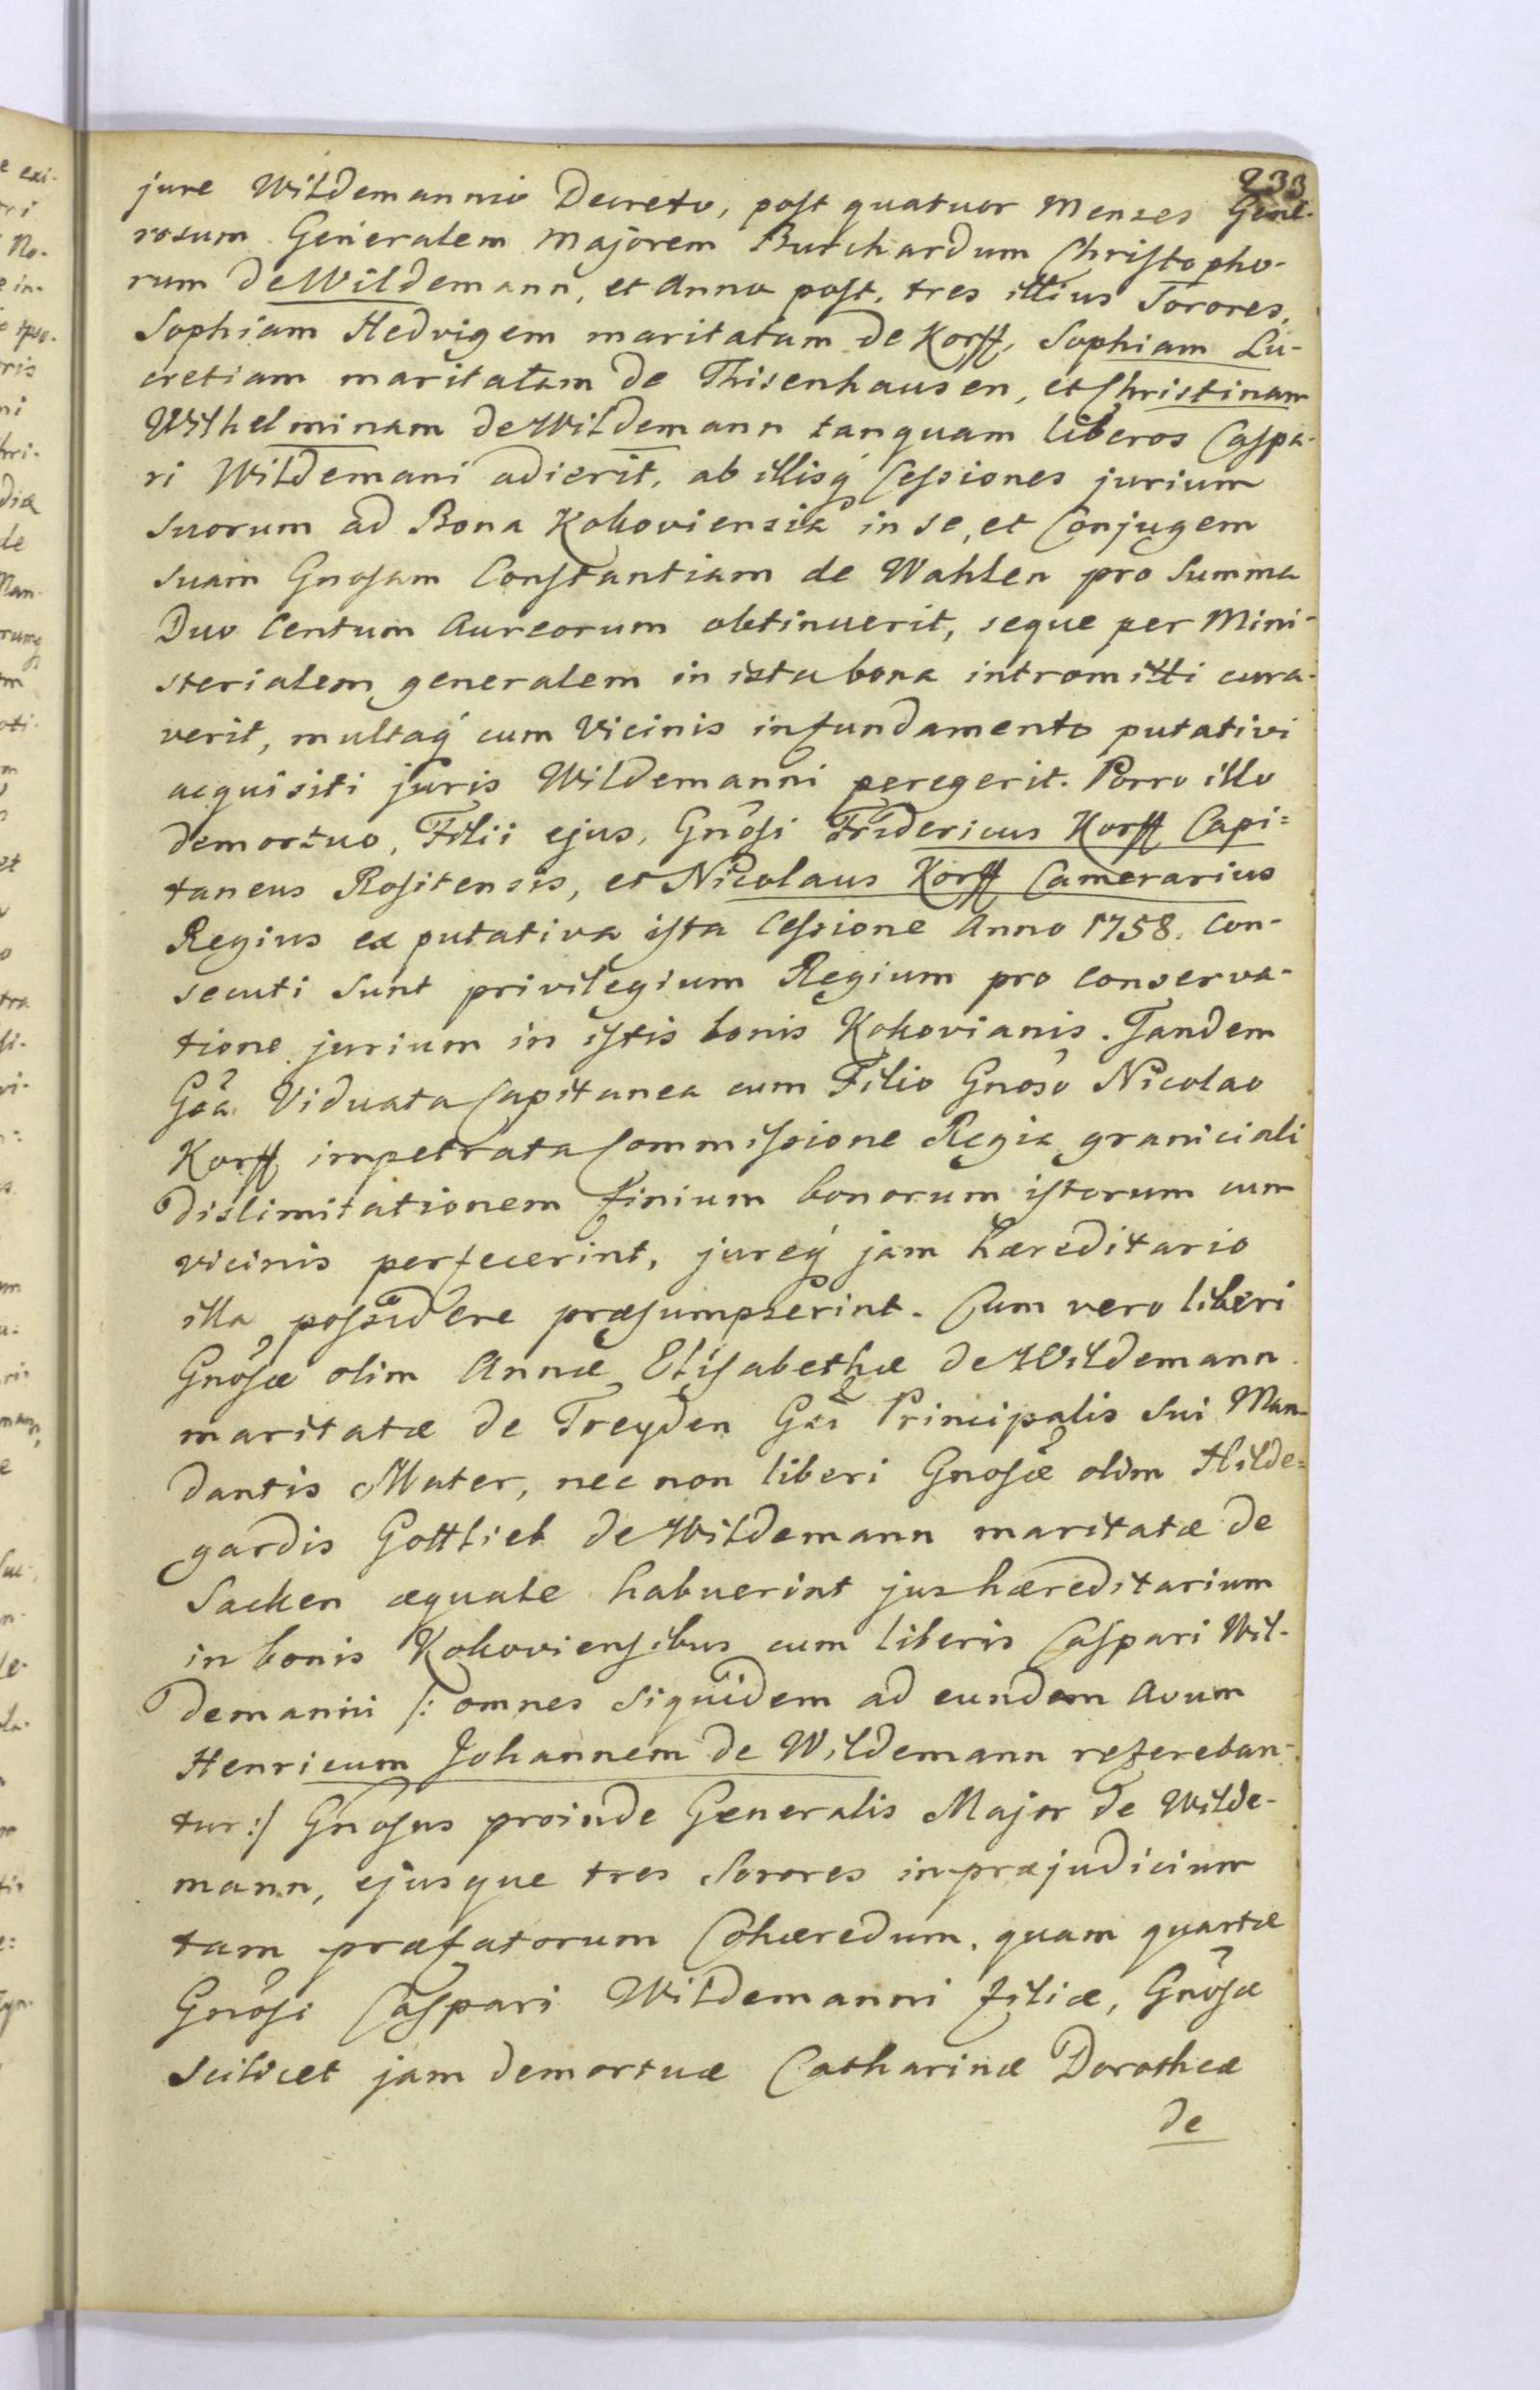 233
jure Wildemannio Decreto, post quatuor Menses Gene-
rosum Generalem Majorem Burchardum Christopho-
rum de Wildemann, et Anno post, tres illius Sorores,
Sophiam Hedvigem maritatam de Korff, Sophiam Lu-
cretiam maritatam de Thisenhausen, et Christinam
Wilhelminam de Wildemann tanquam liberos Caspa-
ri Wildemani adierit, ab illisq́ Cessiones jurium
suorum ad Bona Kokoviensia in se, et Conjugem
suam Gnosam Constantiam de Wahlen pro Summa
Duo Centum Aureorum obtinuerit, seque per Mini-
sterialem generalem in ista bona intromitti cura-
verit, multaq́ cum Vicinis in fundamento putativi
acquisiti juris Wildemanni peregerit. Porro illo
demortuo, Filii ejus, Gnosi Fridericus Korff Capi=
taneus Rositensis, et Nicolaus Korff Camerarius
Regius ex putativa ista Cessione Anno 1758. Con-
secuti sunt privilegium Regium pro conserva-
tione jurium in istis bonis Kokovianis. Tandem
Gsa Viduata Capitanea cum Filio Gnoso Nicolao
Korff impetrata Commissione Regia graniciali
dislimitationem finium bonorum istorum cum
vicinis perfecerint, jureq́ jam hæreditario
illa possidere præsumpserint. Cum vero liberi
Gnosæ olim Annæ Elisabethæ de Wildemann
maritatæ de Treyden Gsi Principalis sui Man-
dantis Mater, nec non liberi Gnosæ olim Hilde=
gardis Gottlieb de Wildemann maritatæ de
Sacken æquale habuerint jus hæreditarium
in bonis Kokoviensibus cum liberis Caspari Wil-
demanni /: omnes siquidem ad eundem Avum
Henricum Johannem de Wildemann refereban-
tur :/ Gnosus proinde Generalis Major de Wilde-
mann, ejusque tres Sorores in præjudicium
tam præfatorum Cohæredum, quam quartæ
Gnosi Caspari Wildemanni filiæ, Gnosæ
scilicet jam demortuæ Catharinæ Dorotheæ
de